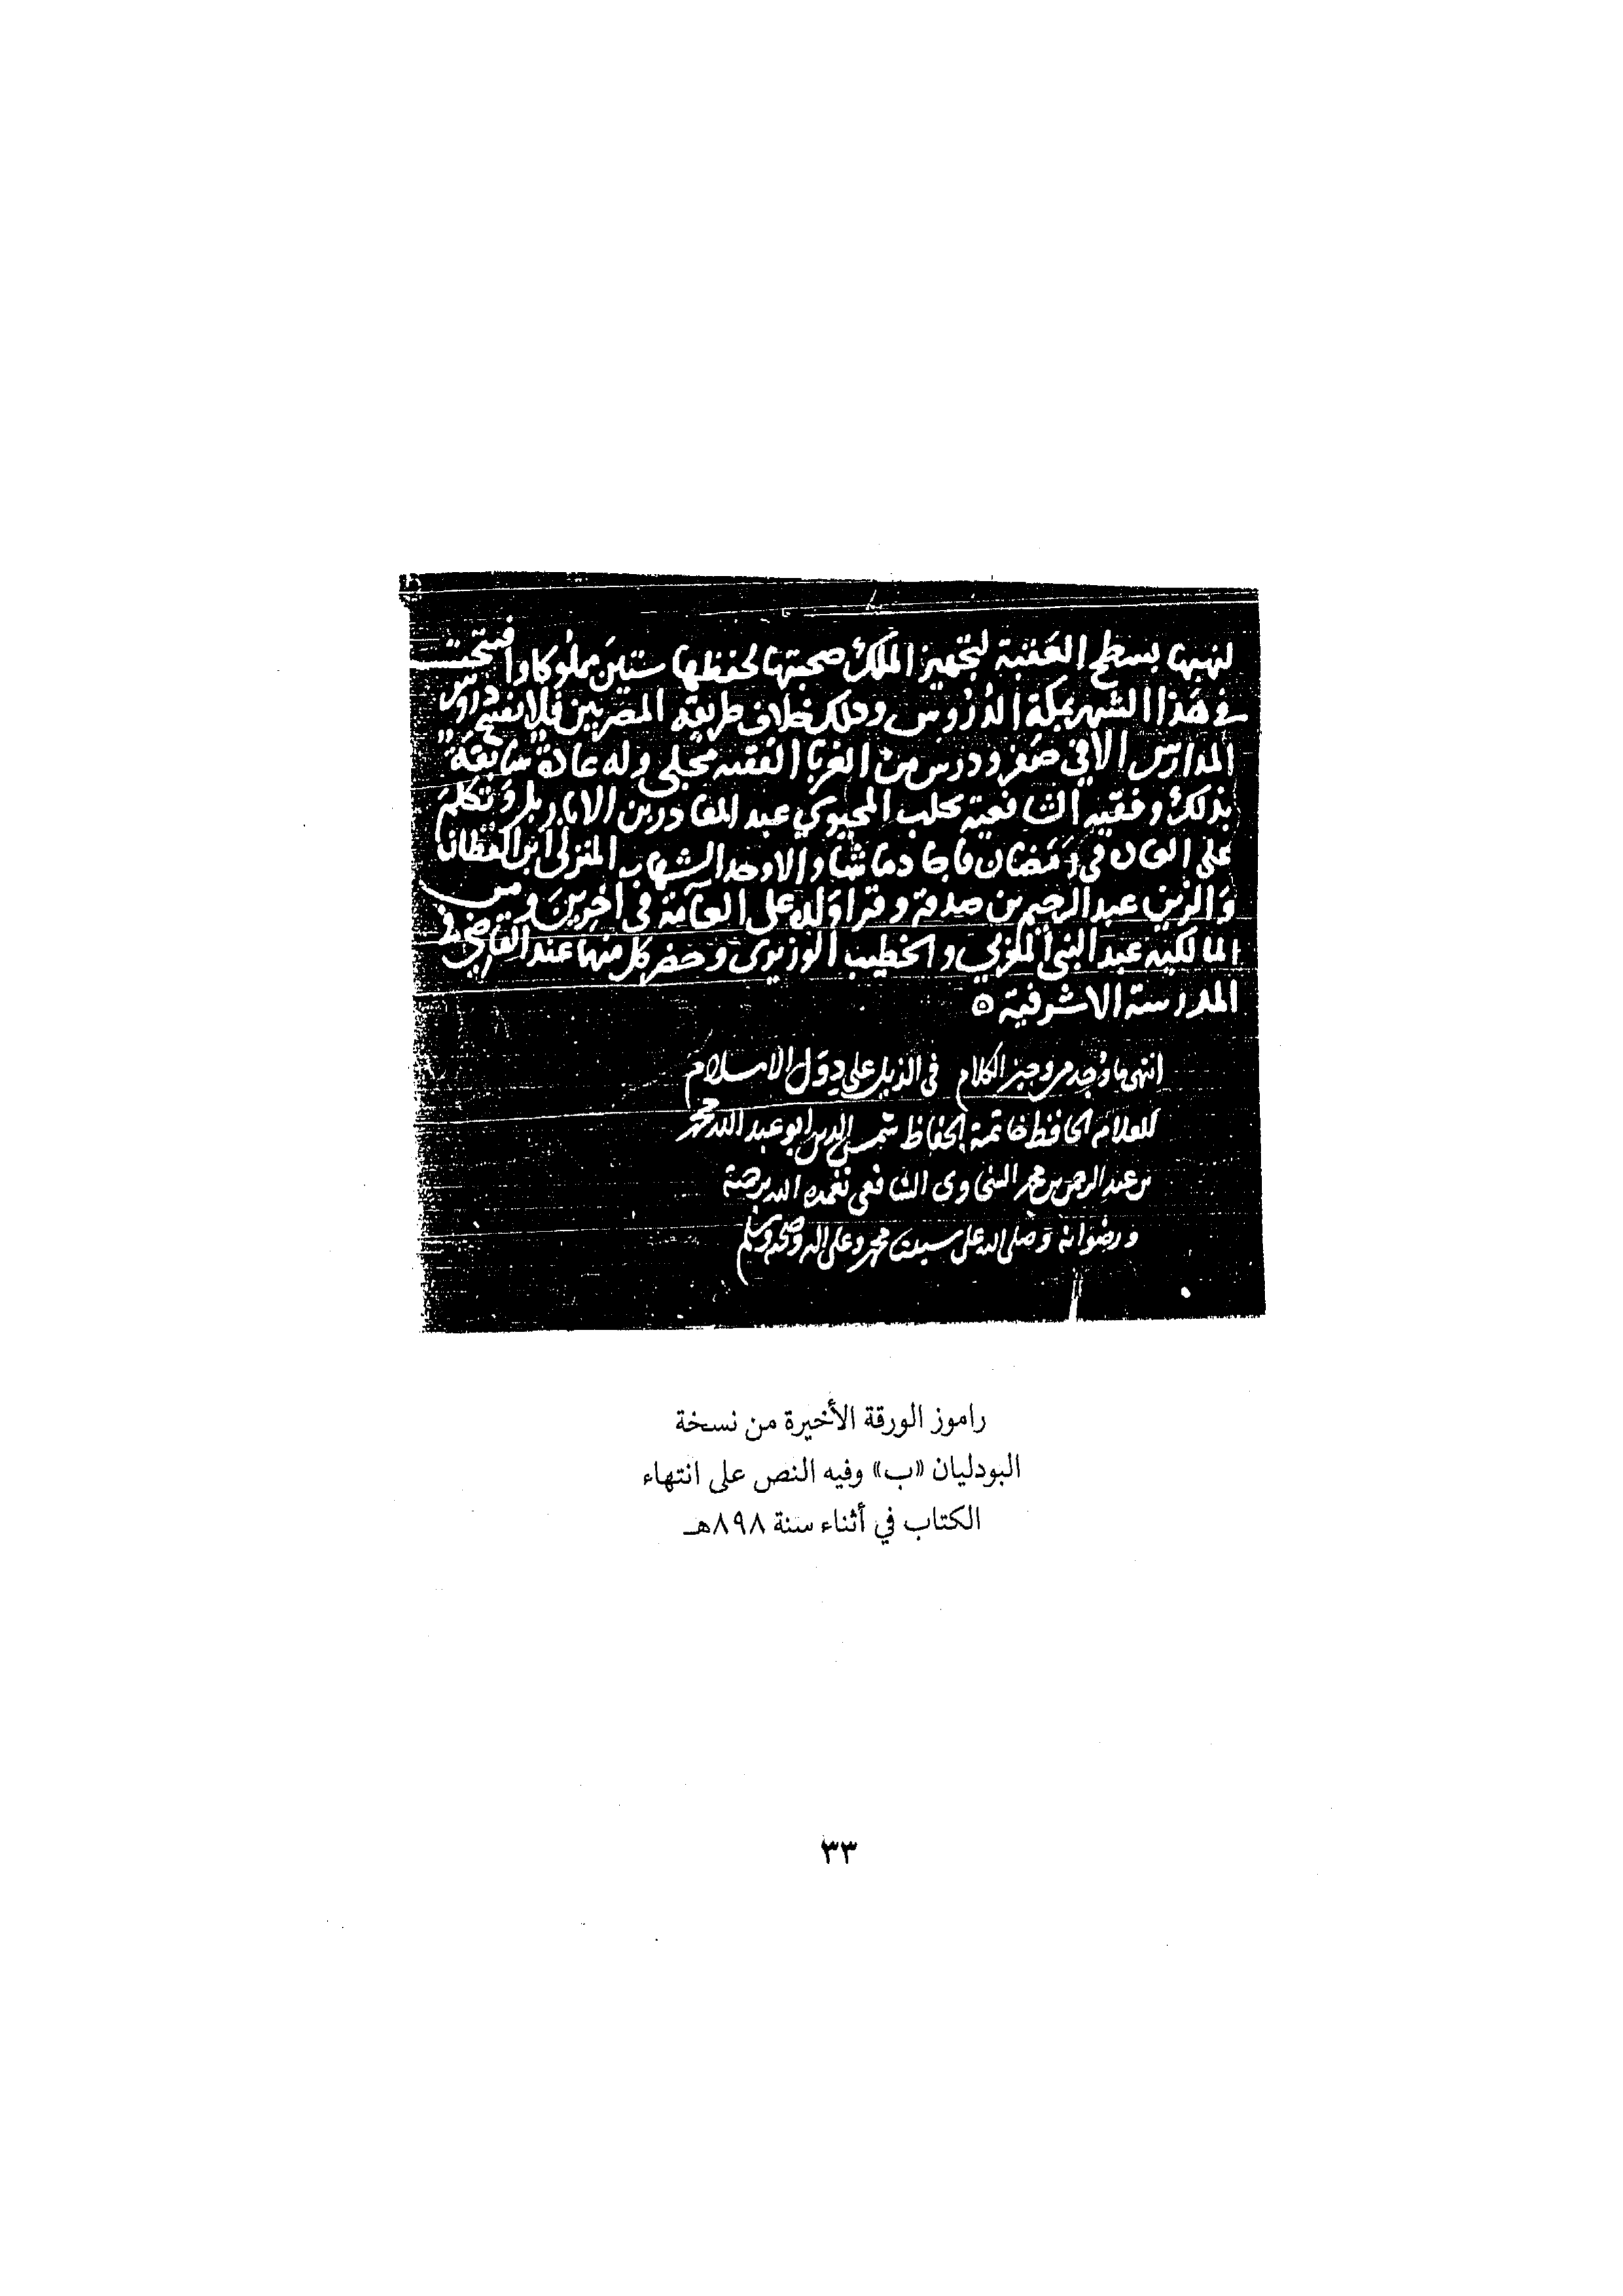 لنهبها بسطح العقبة لتجهيز الملك صحبتها لحفظها ستين مملوكا وافتتحت
في هذا الشهر بمكة الدروس وذلك خلاف طريقة المصريين فلا يفتح دروس
المدارس الا في صفر ودرس من الغربا الفقيه محلي وله عادة سابقة
بذلك وفقيه الشافعية بحلب المحيوي عبد القادر بن الابار بل وتكلم
على العادة في رمضان فاجا دما شا والاوحد الشهاب المنزلي ابن القطان
والزين عبد الرحيم بن صدقة وقرا ولد على العامة في اخرين ومن
المالكية عبد النبي المغربي والخطيب الوزيري وحضر كل منهما عند القاضي في
المدرسة الاشرفية
انتهى ما وجد من وجيز الكلام في الذيل على دول الاسلام
للعلام الحافظ خاتمة الحفاظ شمس الدين ابو عبد الله محمد
بن عبد الرحمن بن محمد السخاوى الشافعى تغمده الله برحمته
ورضوانه وصلى الله على سيدنا محمد وعلى اله وصحبه وسلم
راموز الورقة الأخيرة من نسخة
البودليان «ب» وفيه النص على انتهاء
الكتاب في أثناء سنة ٨٩٨هـ
٣٣